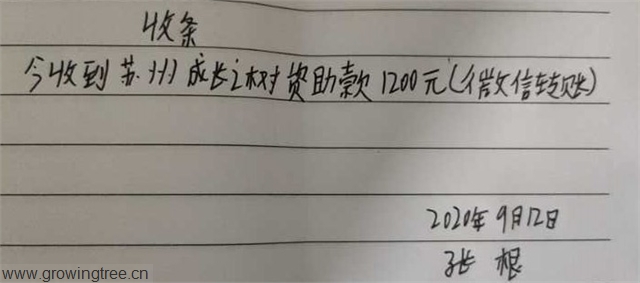 收条
今收到苏州成长之树资助款1200元(微信转账)
2020年9月12日
张根
www.growingtree.cn